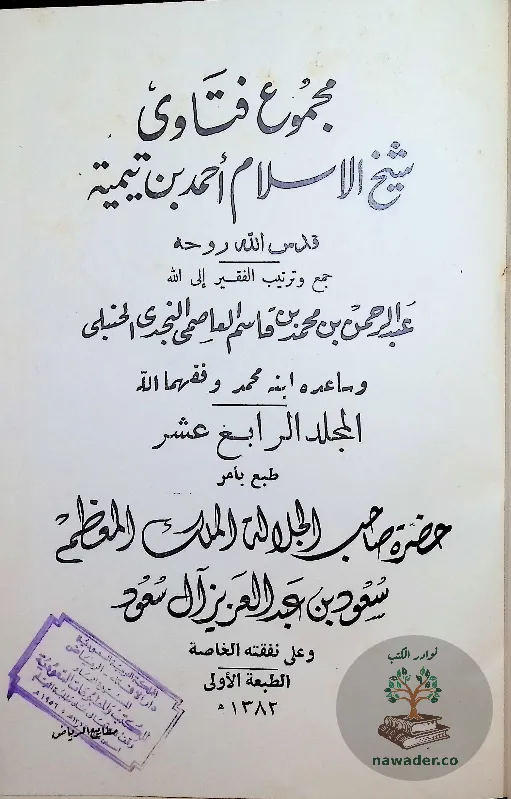 مجموع فتاوى
شيخ الاسلام أحمد بن تيمية
قدس الله روحه
جمع وترتيب الفقير إلى الله
عبد الرحمن بن محمد بن قاسم العاصمي النجدي الحنبلي
وساعده ابنه محمد وفقهما الله
المجلد الرابع عشر
طبع بأمر
حضرة صاحب الجلالة الملك المعظم
سعود بن عبد العزيز آل سعود
وعلى نفقته الخاصة
الطبعة الأولى
١٣٨٢ ه
مطابع الرياض
نوادر الكتب
nawader.co